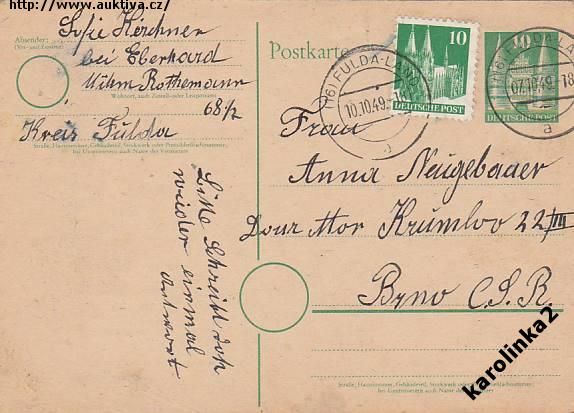 http://www.auktiva.cz/
Absender:
Sofie Kirchner
bei Eberhard
Wilm Rothemann
Wohnort, auch Zustell- oder Leitpostamt
68 1/2
Kreis Fulda
Straße, Hausnummer, Gebäudeteil, Stockwerk oder Postschließfachnummer;
bei Untermietern auch Name des Vermieters
Postkarte
(16) FULDA-LAND
10.10.49
10
DEUTSCHE POST
10
DEUTSCHE POST
(16) FULDA-LAND
07.10.49.18
a
Frau
Anna Neugebauer
Dour Mor Krumlov 22/III
Brno Č.S.R.
Bitte schreibt doch
wieder einmal
Antwort
Straße, Hausnummer, Gebäudeteil, Stockwerk oder Postschließfachnummer;
bei Untermietern auch Name des Vermieters
karolinka2